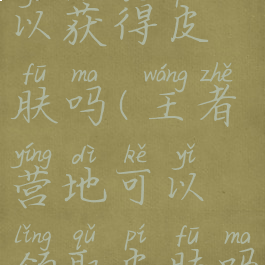 以获得皮
fū ma wáng zhě
肤吗(王者
yíng dì kě yǐ
营地可以
lǐng qǔ pí fū ma
领取皮肤吗